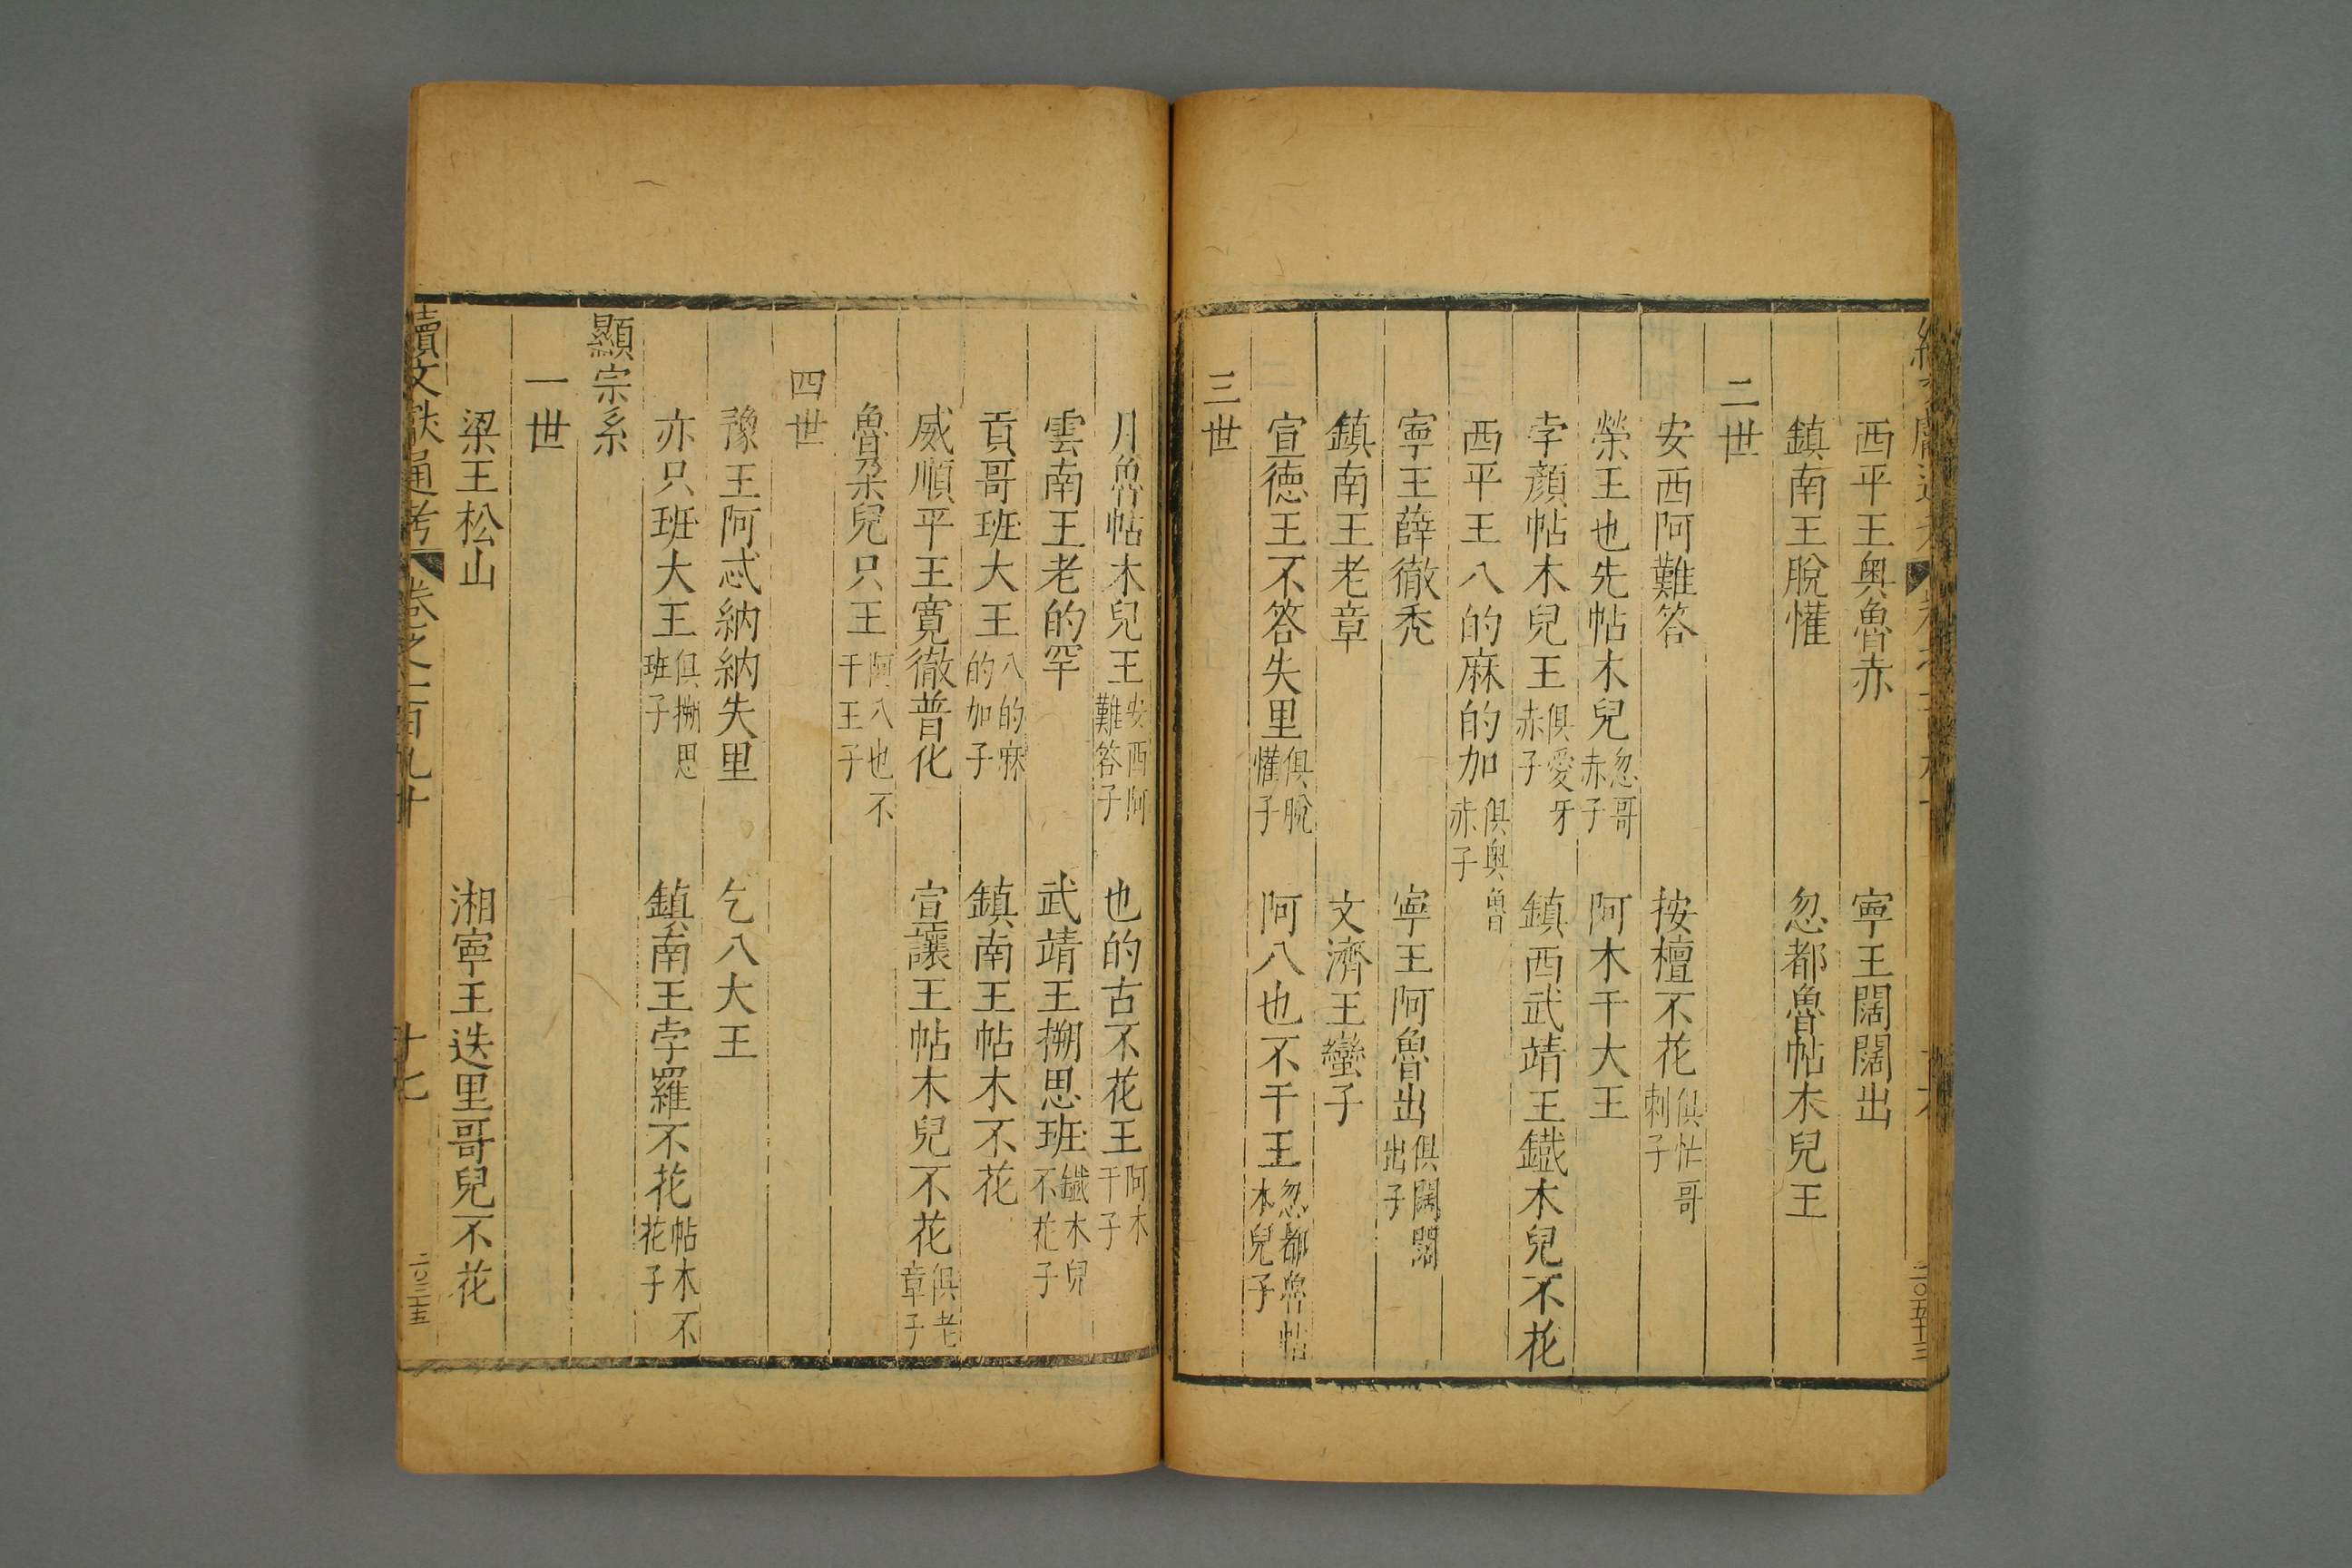 西平王奥魯赤 寧王闊闊出
鎮南王脫懽 忽都魯帖木兒王
二世
安西阿難答 按檀不花俱忙哥剌子
榮王也先帖木兒忽哥赤子 阿木干大王
孛顏帖木兒王俱愛牙赤子 鎮西武靖王鐵木兒不花
西平王八的麻的加俱奥魯赤子
寧王薛徹禿 寧王阿魯出俱闊闊出子
鎮南王老章 文濟王蠻子
宣德王不答失里俱脫懽子 阿八也不干王忽都魯帖木兒子
三世
月魯帖木兒王安西阿難答子 也的古不花王阿木干子
雲南王老的罕 武靖王搠思班鐵木兒不花子
貢哥班大王八的麻的加子 鎮南王帖木不花
威順平王寬徹普化 宣讓王帖木兒不花俱老章子
魯朶兒只王阿八也不干王子
四世
豫王阿忒納納失里 乞八大王
亦只班大王俱搠思班子 鎮南王孛羅不花帖木不花子
顯宗系
一世
梁王松山 湘寧王迭里哥兒不花
續文獻通考 卷之一百九十 十七